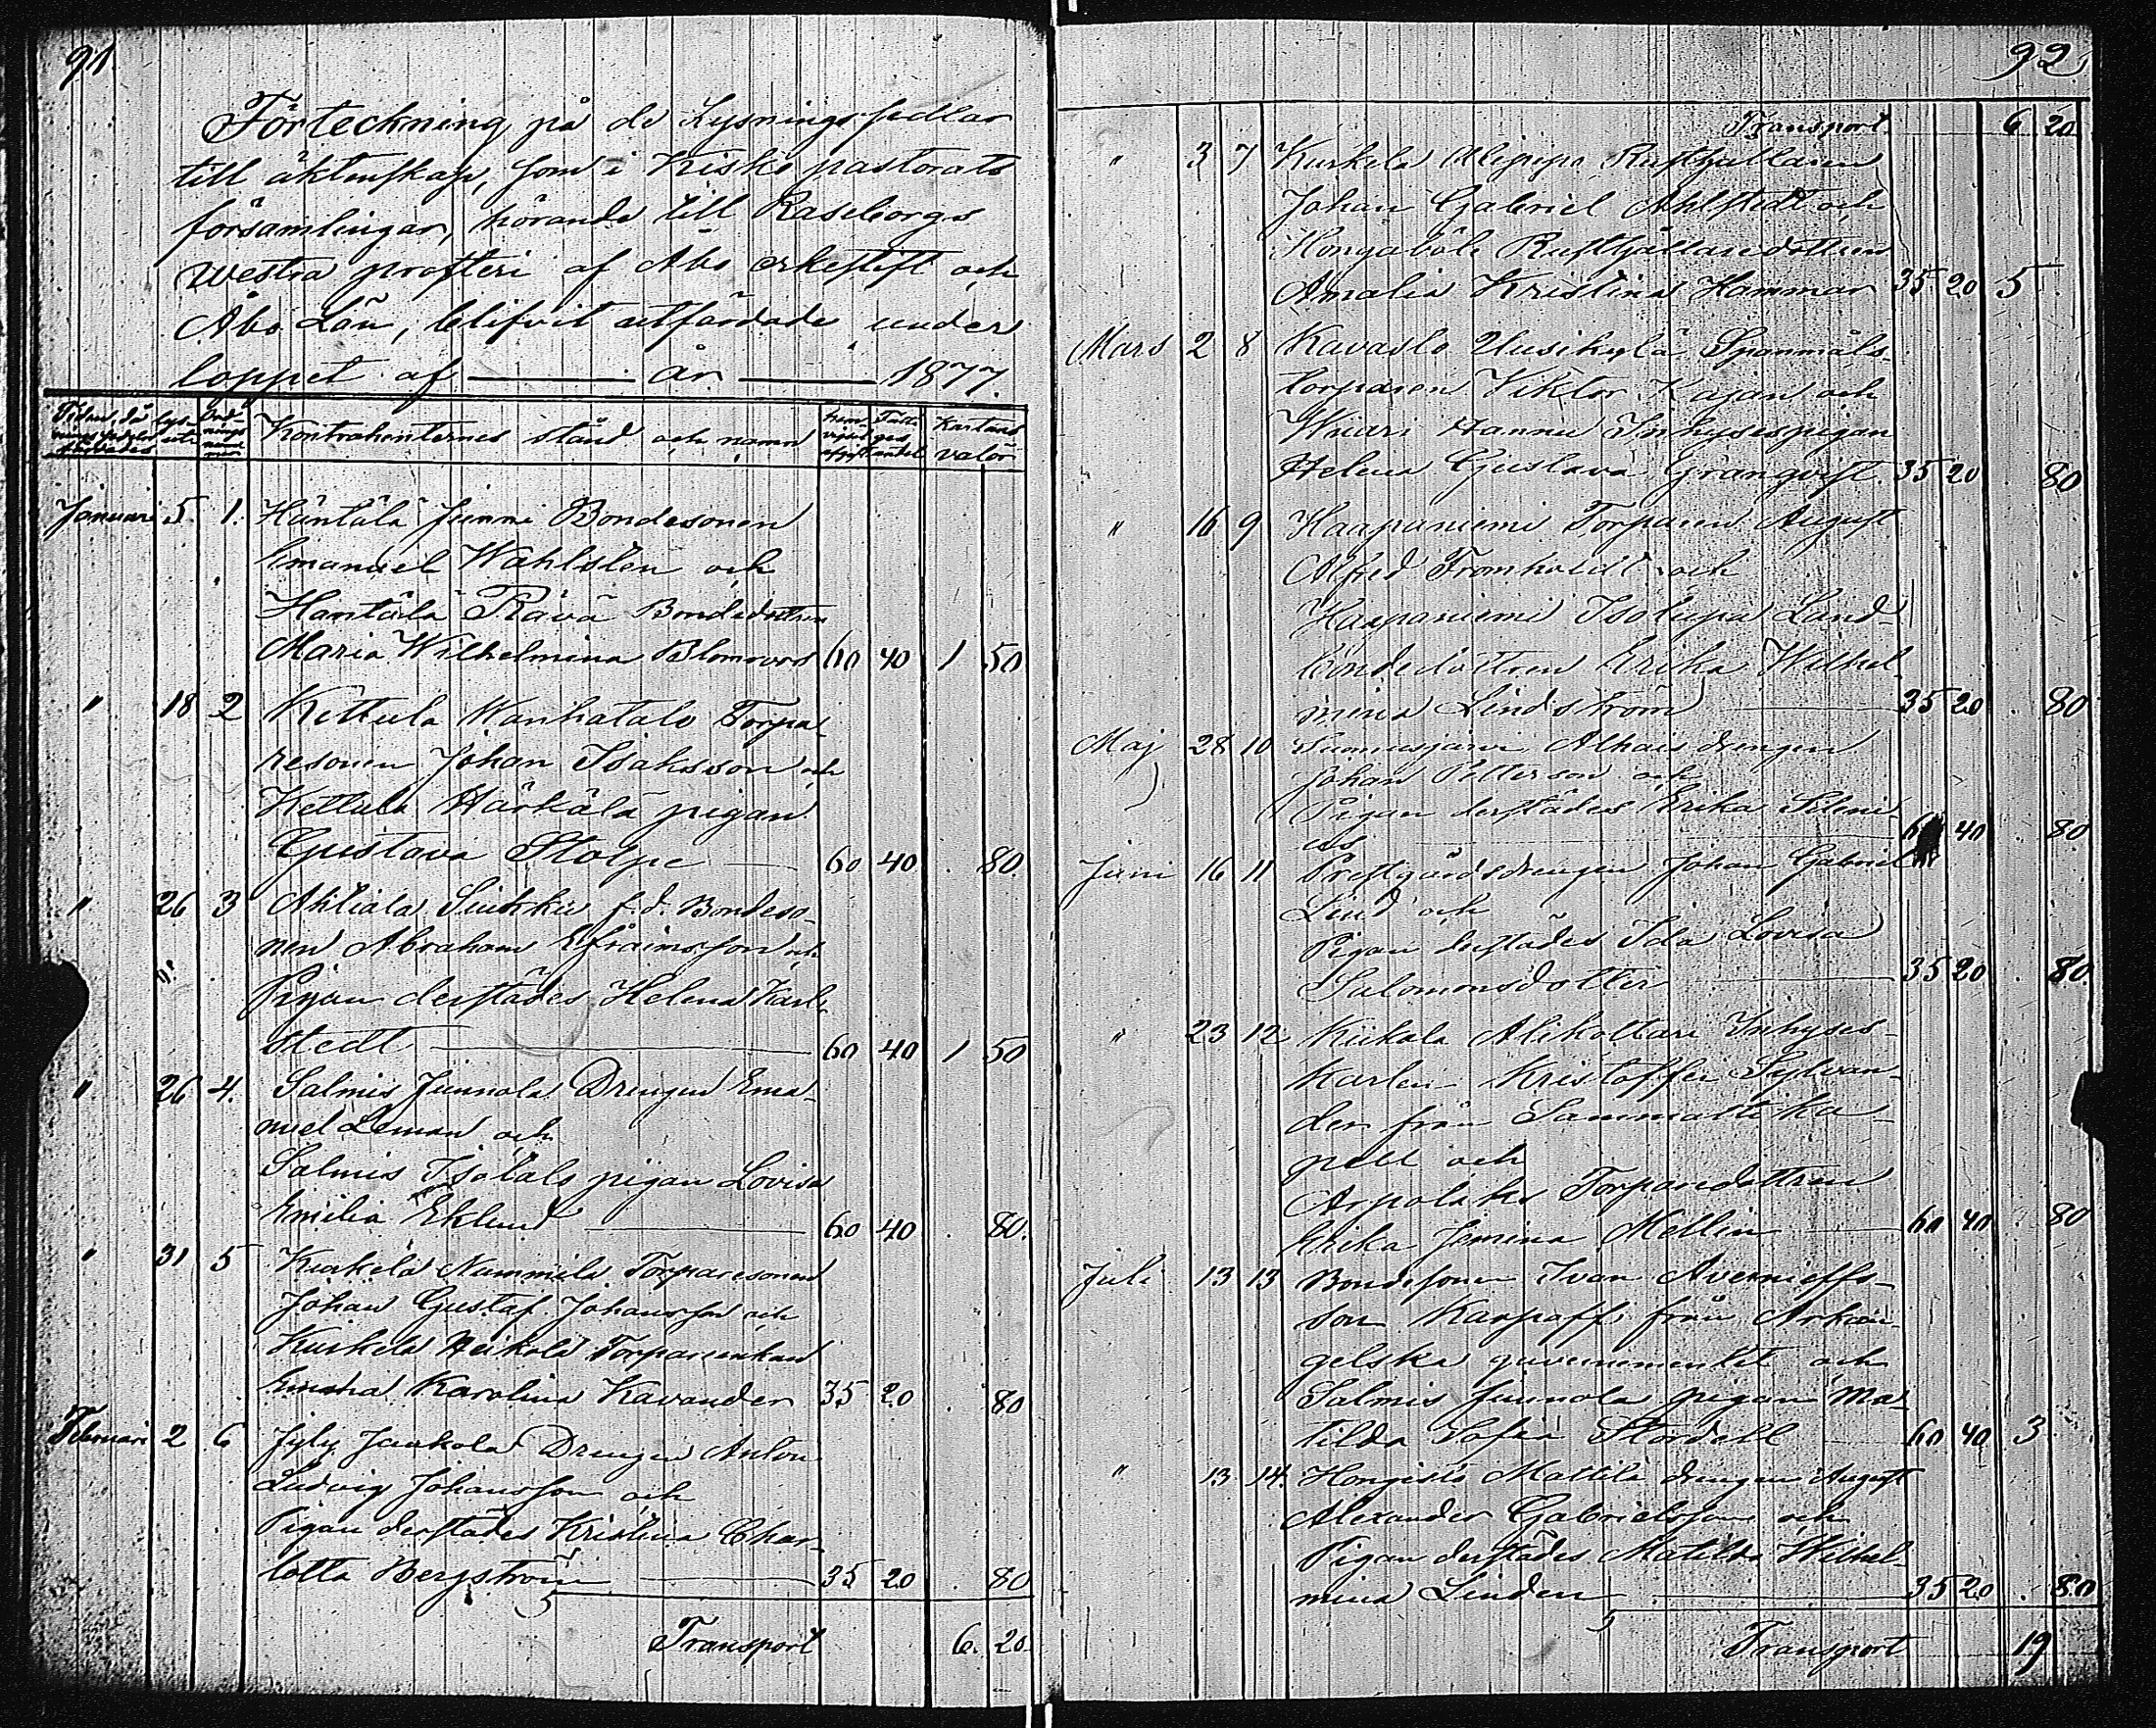 91.
Förteckning på de Lysningssedlar
till äktenskap, som i Kisko pastorats
församlingar, hörande till Raseborgs
westra prosteri af Åbo erkestift och
Åbo Län, blifvit utfärdade under
loppet af — år — 1877.
Kontrahenternes stånd och namn Kartans valör
Januari 5. 1. Häntälä Junni Bondesonen
Emanuel Wahlsten och
Hantäla Rävä Bondedottren
Maria Wilhelmina Blomroos 60 40 1 50
" 18 2 Kettula Wanhatalo Torpa-
resonen Johan Isaksson och
Kettula Härkälä pigan
Gustava Stolpe — 60 40 . 80.
" 26 3 Ahtiala Siukku f.d. Bondeso-
nen Abraham Efraimsson och
Pigan derstädes Helena Karl-
stedt — 60 40 1 50
" 26 4. Salmis Junnola Drengen Ema-
nuel Leman och
Salmis Isotalo pigan Lovisa
Emilia Eklund — 60 40 . 80.
" 31 5 Kurkelä Nummila Torparesonen
Johan Gustaf Johansson och
Kurkela Heikola Torpareenkan
Karolina Kavander 35 20 . 80
Februari 2 6 Jyly Jaakola Drengen Anton
Ludvig Johansson och
Pigan derstädes Kristina Char-
lotta Bergström — 35 20 . 80
Transport 6. 20.
92
Transport 6 20
" 3 7 Kurkela Alipipa Rusthållaren
Johan Gabriel Ahlstedt och
Hongaböle Rusthållaredottren
Amalia Kristina Hammar 35 20 5
Mars 2 8 Kavasto Uusikylä Spanmåls-
torparen Viktor Kajan och
Wiiari Hannu Inhysespigan
Helena Gustava Granqvist 35 20 . 80
" 16 9 Haapaniemi Torparen August
Alfred Fromholdt och
Haapaniemi Isotupa Land-
bondedottren Erika Wilhel-
mina Lindström — 35 20 . 80
Maj 28 10 Suomusjärvi Alhais drengen
Johan Petterson och
Pigan derstädes Erika Seleni-
us — 40 . 80
Juni 16 11 Prestgårdsdrengen Johan Gabriel
Lind och
Pigan derstädes Ida Lovisa
Salomonsdotter — 35 20 . 80.
" 23 12 Kiikala Alikoltari Inhyses-
karlen Kristoffer Sylvan-
der från Sammatti ka-
pell och
Arpalaks Torparedottren
Erika Jemina Mellin — 60 40 . 80
Juli 13 13 Bondesonen Ivan Avernieffs-
son Karpoff från Arkan-
gelska guvernementet och
Salmis Junnola pigan Ma-
tilda Sofia Stordell 60 40 3
" 13 14. Hongisto Mattila drengen August
Alexander Gabrielsson och
Pigan derstädes Matilda Wilhel-
mina Linden — 35 20 . 80
Transport 19